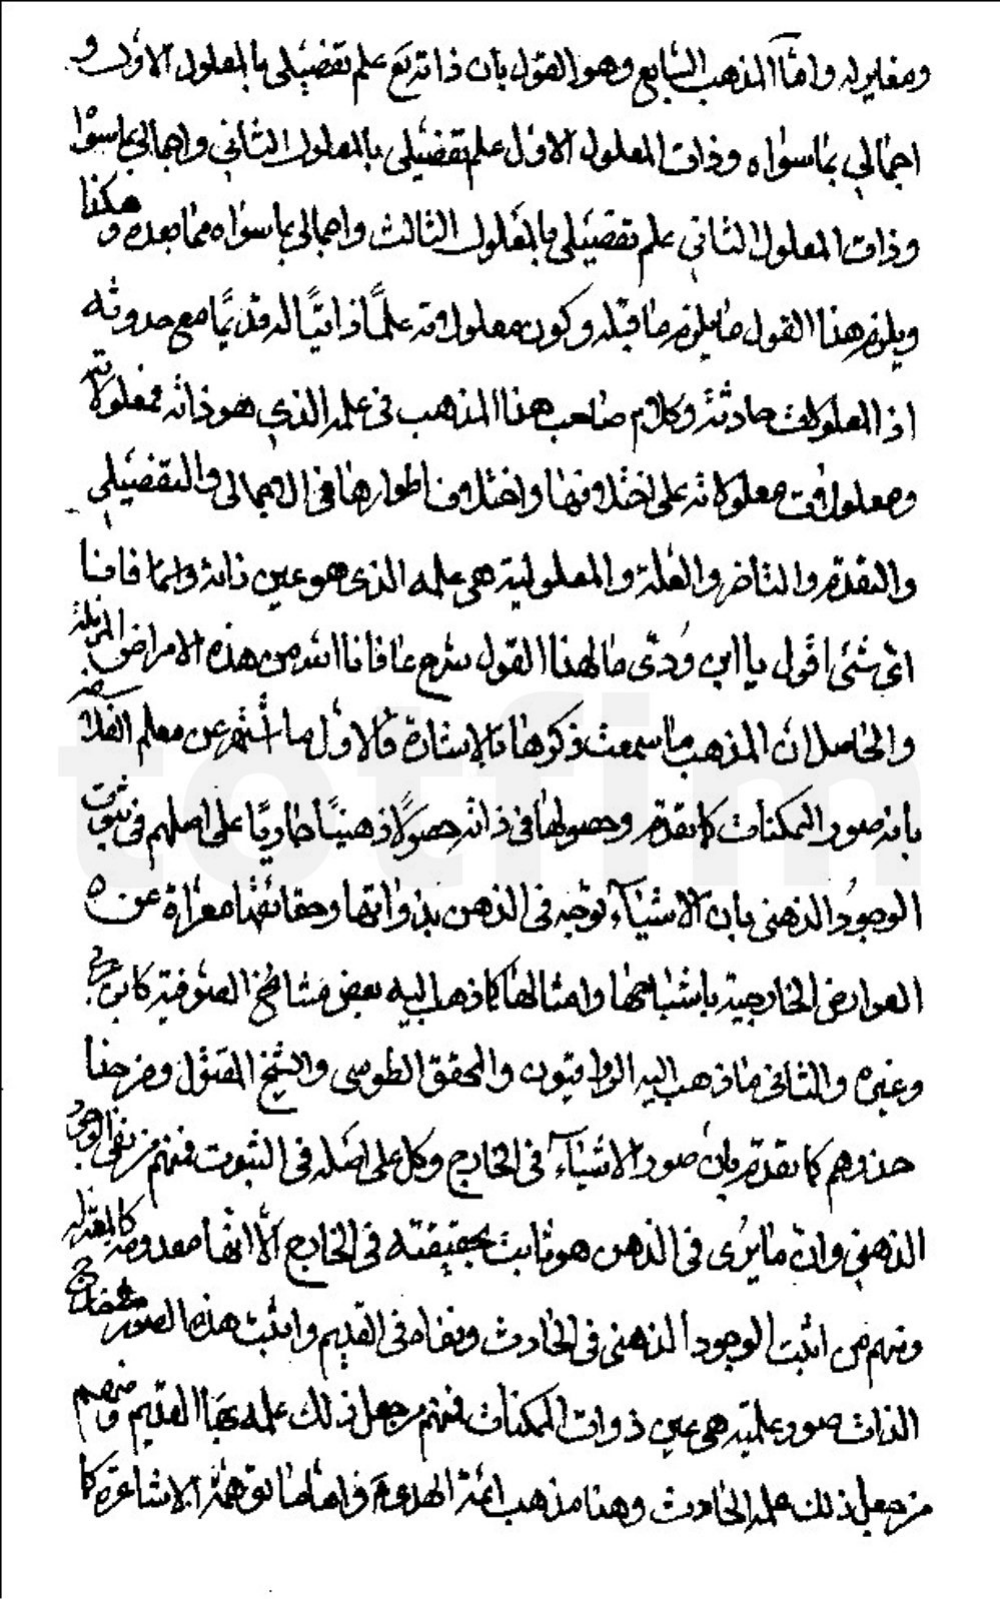 ومغاير له واما المذهب السابع وهو القول بان ذاته تع علم تفضيلى بالمعلول الاول و
اجمالي بما سواه وذات المعلول الاول علم تفضيلى بالمعلول الثاني واجمالي بما سواه
وذات المعلول الثاني علم تفضيلى بالمعلول الثالث واجمالى بما سواه مما بعده و هكذا
ويلزم هذا القول ما يلزم ما قبله وكون معلولاته علمًا ذاتيًّا له قديمًا مع حدوثه
اذ المعلولات حادثة وكلام صاحب هذا المذهب في علمه الذي هو ذاته فمعلولاته
ومعلولات معلولاته على اختلافها واختلاف اطوارها في الاجمالى والتفضيلي
والتقدم والتاخر والعلة والمعلولية هي علمه الذى هو عين ذاته
اي شئ اقول يا ابن ودى ما لهذا القول شرح عافانا الله من هذه الامراض المزيلة
والحاصل ان المذهب ما سمعت ذكرها بالاشارة فالاول ما اشتهر عن معلم الفلاسفه
بانه صور الممكنات كما تقدم وحصولها في ذاته حصولًا ذهنيًا على اصلهم في ثبوت
الوجود الذهني بان الاشياء توجد في الذهن بذواتها وحقائقها معراة عن
العوارض الخارجية باشباحها وامثالها كما ذهب اليه بعض مشائخ الصوفية كابن
وغيره والثاني ما ذهب اليه الرواقيون والمحقق الطوسى والشيخ المقتول ومن حذا
حذوهم كما تقدم بان صور الاشياء في الخارج وكل على اصله في الثبوت فمنهم من نفى الوجود
الذهني وان ما يرى في الذهن هو ثابت بحقيقته في الخارج الا انها معدومة كالمعتزله
ومنهم من اثبت الوجود الذهنى في الحادث ونفاه في القديم واثبت هذه الصور خارج
الذات صور علمية هي عين ذوات الممكنات فمنهم من جعل ذلك علمه بها القديم ومنهم
من جعل ذلك علمه الحادث وهذا مذهب ائمة الهدى ع واما ما توهمه الاشاعرة كما